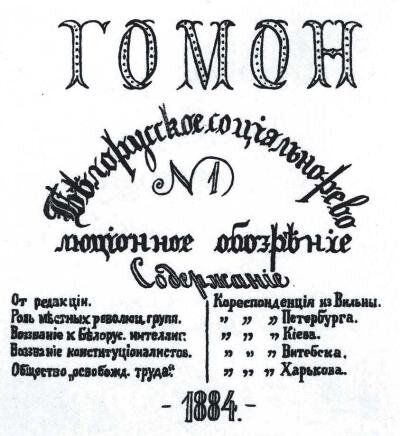 ГОМОН
Бѣлорусское соціально-рево
№ 1
люціонное обозрѣніе
Содержаніе
От редакціи.
Роль мѣстных революц. групп.
Воззваніе к бѣлорус. интеллиг.
Воззваніе конституціоналистов.
Общество „освобожд. труда“.
Кореспонденція из Вильны.
„ „ „ Петербурга.
„ „ „ Кіева.
„ „ „ Витебска.
„ „ „ Харькова.
- 1884. -